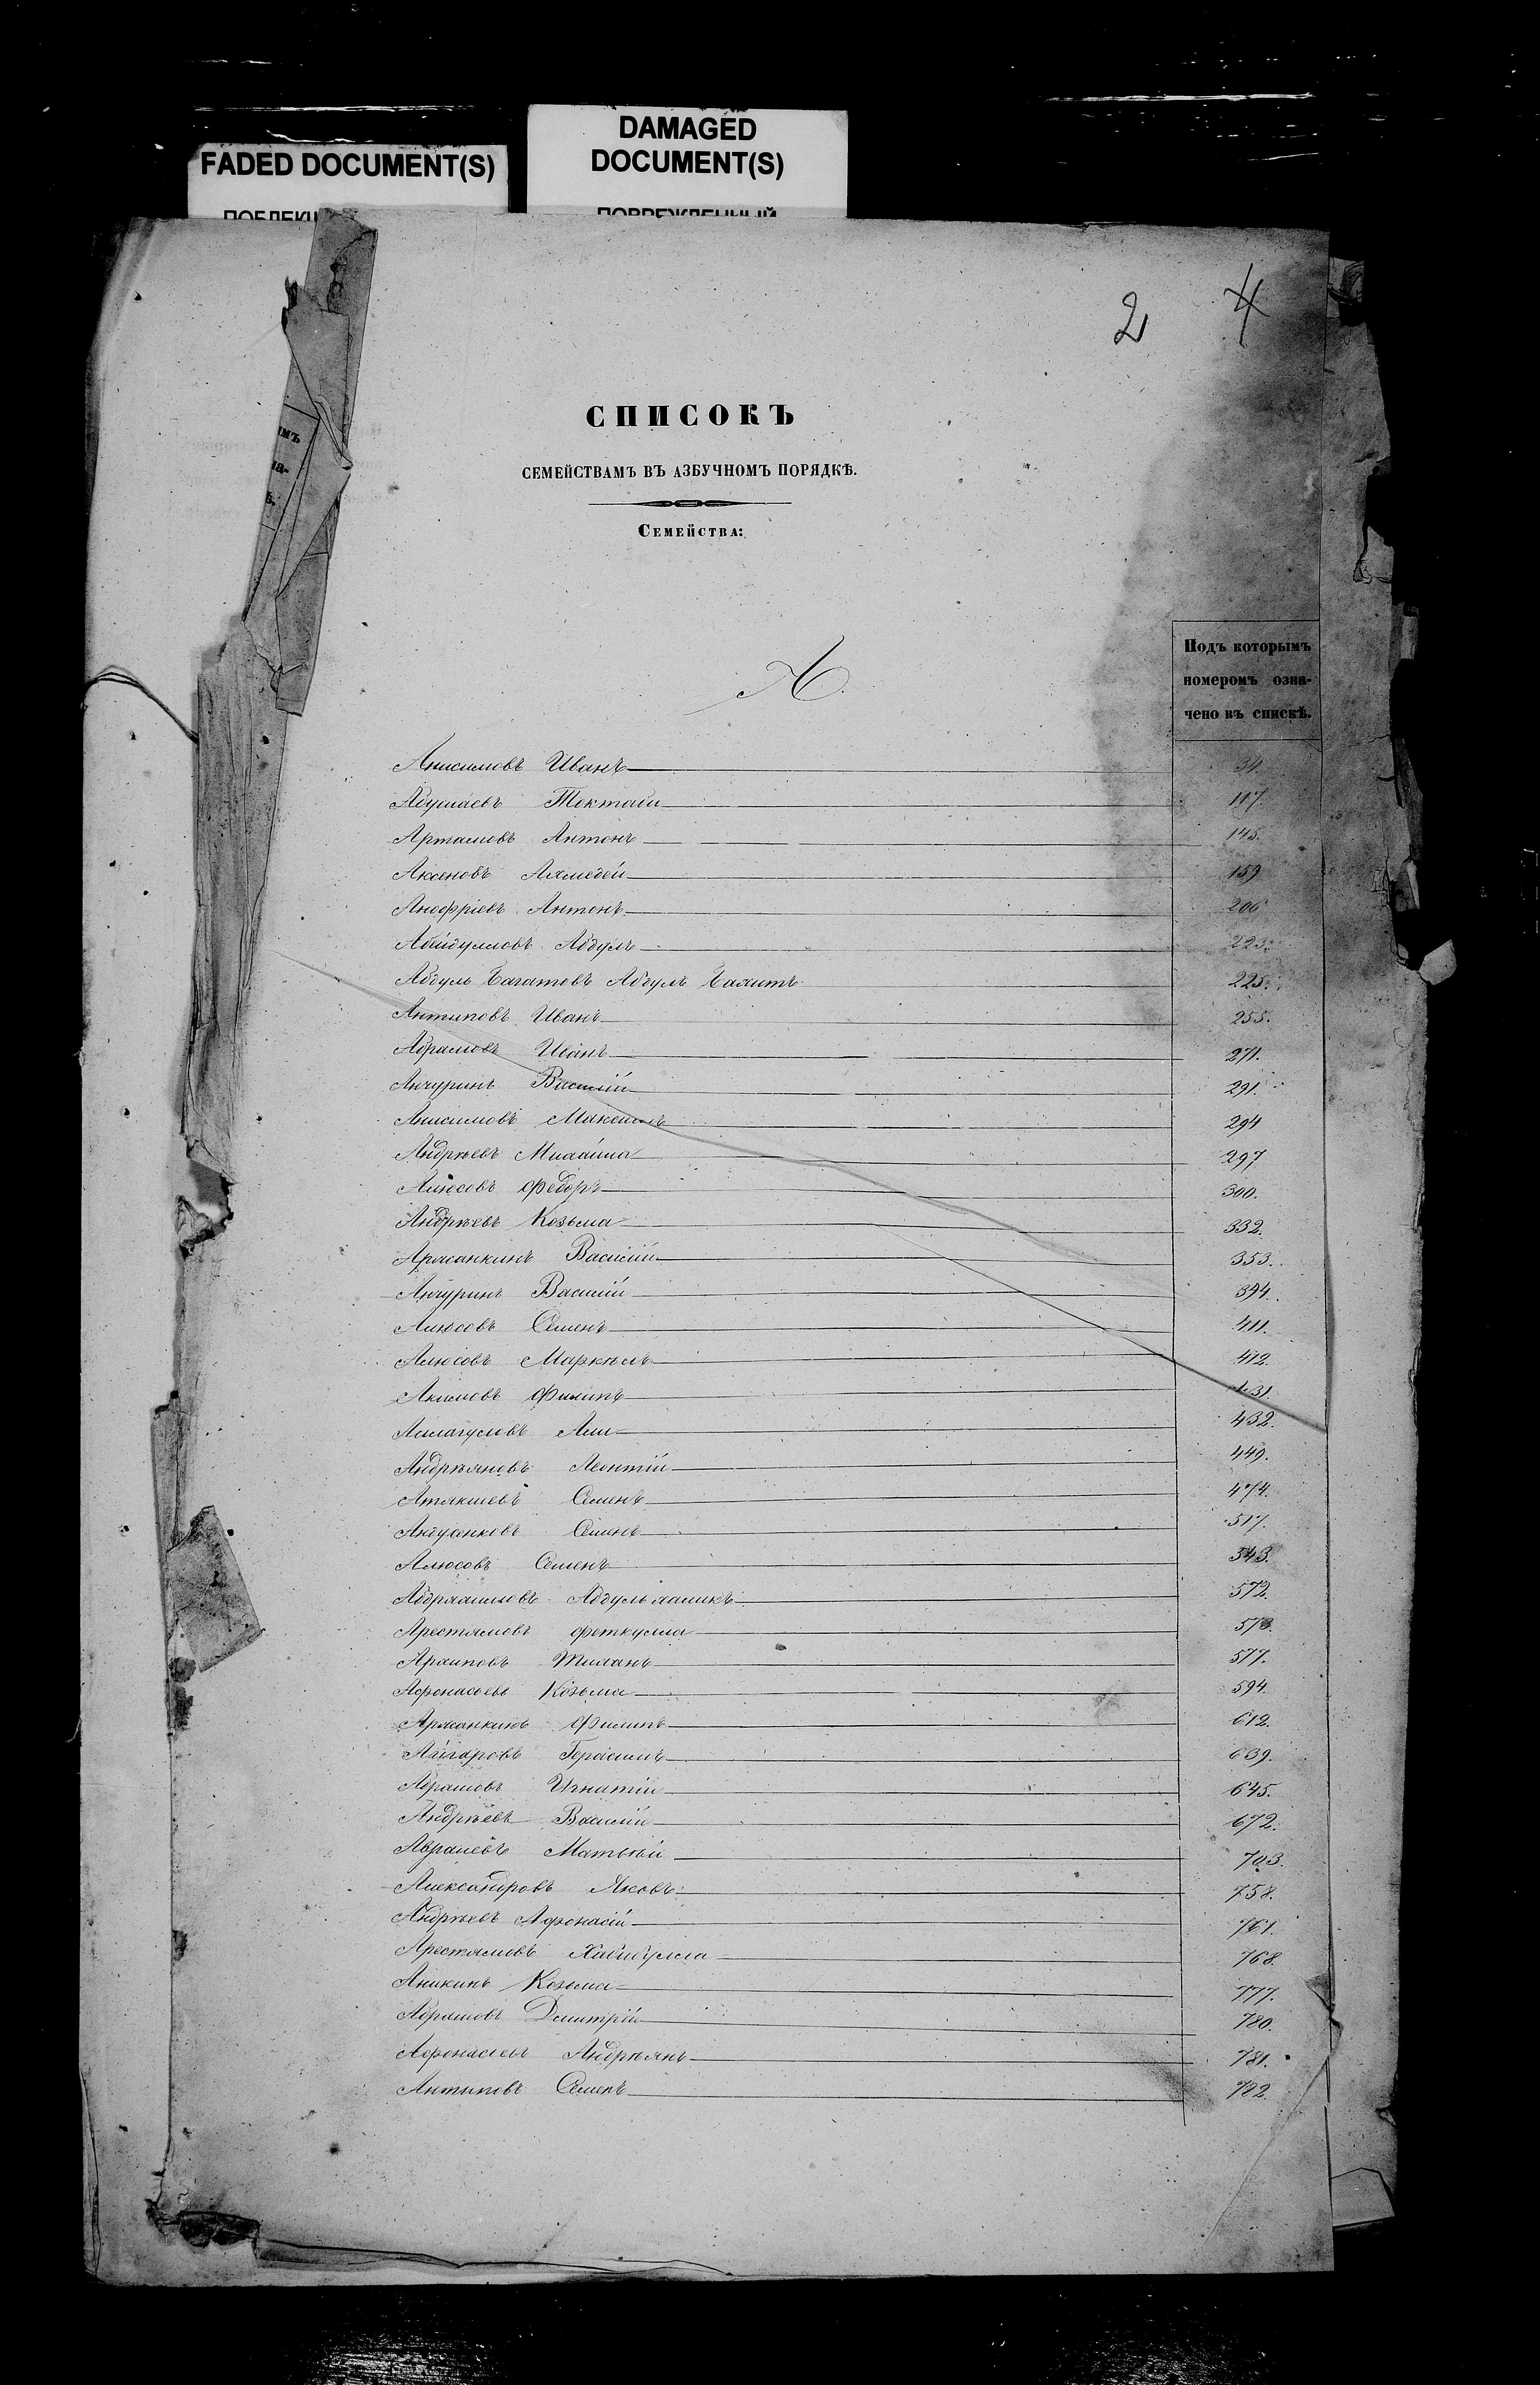 FADED DOCUMENT(S)
DAMAGED
DOCUMENT(S)
2 4
СПИСОКЪ
СЕМЕЙСТВАМЪ ВЪ АЗБУЧНОМЪ ПОРЯДКѢ.
Семейства:
А.
Подъ которымъ
номеромъ озна-
чено въ спискѣ.
Анисимовъ Иванъ 34.
Абушаевъ Токташ 117.
Артамовъ Антонъ 145.
Аксеновъ 159
Анофріевъ Антонъ 206
Абайдулловъ Абдулъ 223.
Абдулъ Багатовъ Абдулъ 225.
Антиповъ Иванъ 255.
Абрамовъ Иванъ 271.
Анчуринъ Василій 291.
Анисимовъ Максимъ 294
Андрѣевъ Михайла 297
Алюсовъ Федоръ 300.
Андрѣевъ Козьма 332.
Аржанкинъ Василій 353.
Анчуринъ Василій 394.
Алюсовъ Семенъ 411.
Алюсовъ Маркѣлъ 412.
Акимовъ Филипъ 431.
Алмагуловъ Али 432.
Андрѣяновъ Леонтій 449.
Атякшевъ Семенъ 474.
Семенъ 517.
Алюсовъ Семенъ 543.
Абдряшимовъ 572.
Арестямовъ Феткулла 573.
Архиповъ Тиханъ 577.
Афонасьевъ Козьма 594.
Аржанкинъ Филипъ 612.
Айгаровъ Герасимъ 639.
Абрамовъ Игнатій 645.
Андрѣевъ Василій 672.
Авраевъ Матвѣй 703.
Александровъ Яковъ 758.
Андрѣевъ Афонасій 761.
Арестямовъ Хабибулла 768.
Аникинъ Козьма 777.
Абрамовъ Дмитрій 780.
Афонасьевъ Андрѣянъ 781.
Антиповъ Семенъ 782.